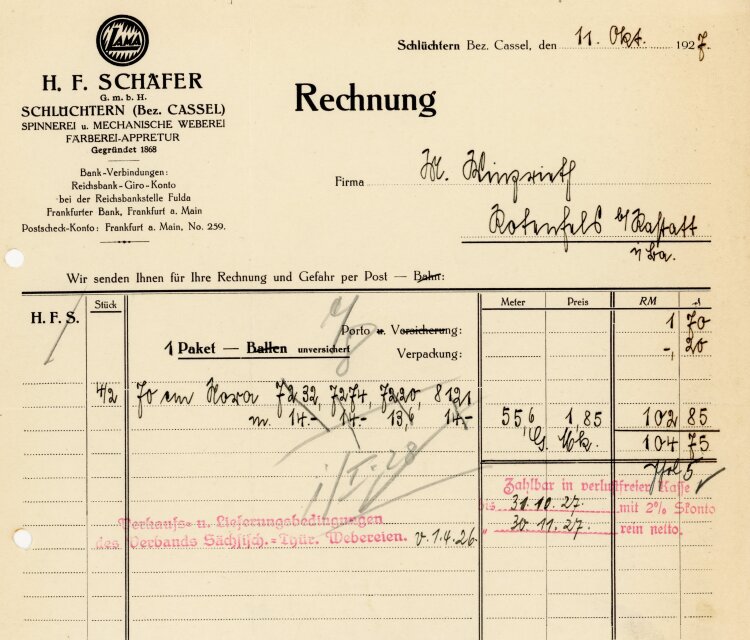 LAMA
H. F. SCHÄFER
G. m. b. H.
SCHLÜCHTERN (Bez. CASSEL)
SPINNEREI u. MECHANISCHE WEBEREI
FÄRBEREI-APPRETUR
Gegründet 1868
Bank-Verbindungen:
Reichsbank-Giro-Konto
bei der Reichsbankstelle Fulda
Frankfurter Bank, Frankfurt a. Main
Postscheck-Konto: Frankfurt a. Main, No. 259.
Schlüchtern Bez. Cassel, den 11. Okt. 1927.
Rechnung
Firma M. Winzrieth
Rotenfels b/Rastatt
i/Ba.
Wir senden Ihnen für Ihre Rechnung und Gefahr per Post — Bahn:
Stück Meter Preis RM
H. F. S.
Porto u. Versicherung: 1 70
1 Paket — Ballen unversichert
Verpackung: -, 20
4/2 70 cm Nora 7232, 7274, 7220, 8121
m. 14.- 14.- 13,6 14.- 55 6 1,85 102 85
G. Mk. 104 75
Zahlbar in verlustfreier Kasse
bis 31.10.27. mit 2% Skonto
" 30.11.27. rein netto.
Verkaufs- u. Lieferungsbedingungen
des Verbands Sächsisch.-Thür. Webereien. v. 1.4.26.